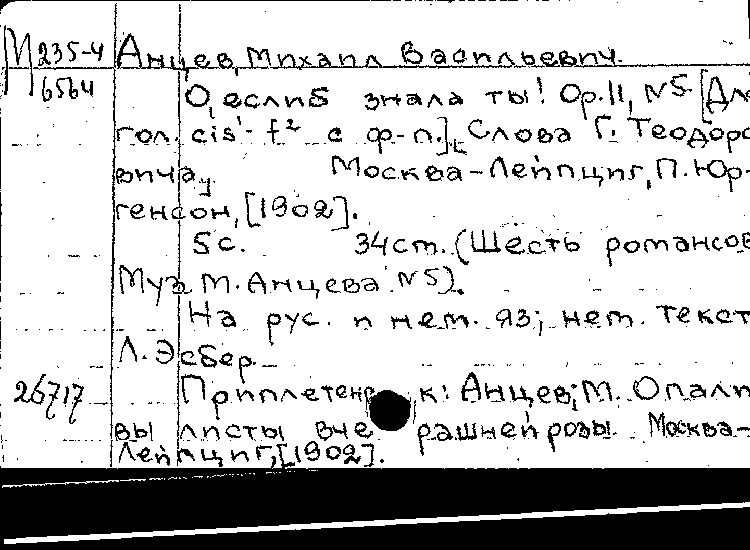 М 235-4 Анцев, Михаил Васильевич.
6564
О, еслиб знала ты! Op.11, №5 [Дл
гол. cis¹-f² с ф-п.]. Слова Г. Теодоро
вича. Москва-Лейпциг, П. Юр-
генсон, [1902].
5с. 34ст. (Шесть романсов
Муз М. Анцева №5).
На рус. и нем. яз; нем. текст
Л. Эсбер.
26717 Приплетено к: Анцев, М. Опали
вы листы вче рашней розы. Москва-
Лейпциг, [1902].